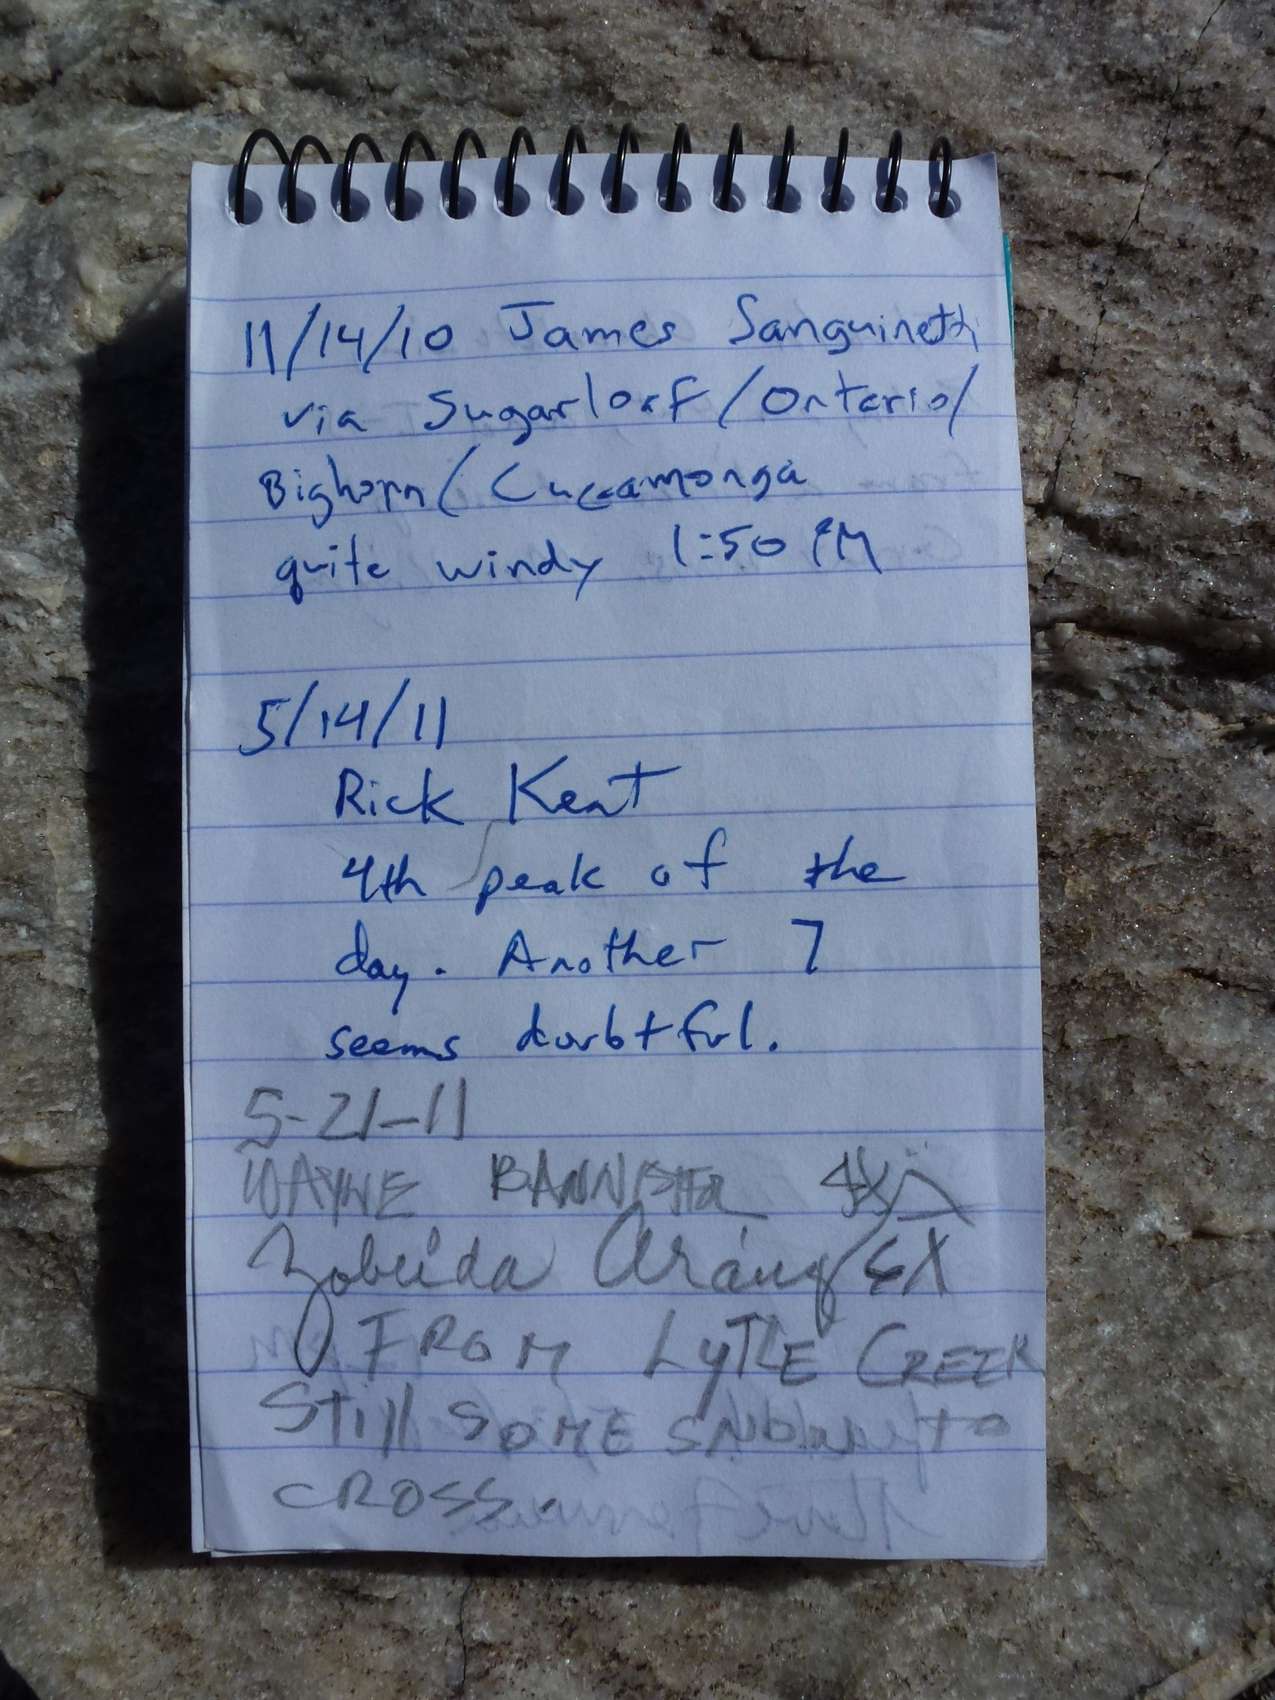 11/14/10 James Sanguinetti
via Sugarloaf/Ontario/
Bighorn/Cucamonga
quite windy 1:50 PM
5/14/11
Rick Kent
4th peak of the
day. Another 7
seems doubtful.
5-21-11
WAYNE BANNISTER 4X
Zobeida Arang 6X
FROM LYTLE CREEK
Still SOME SNOW to
CROSS.